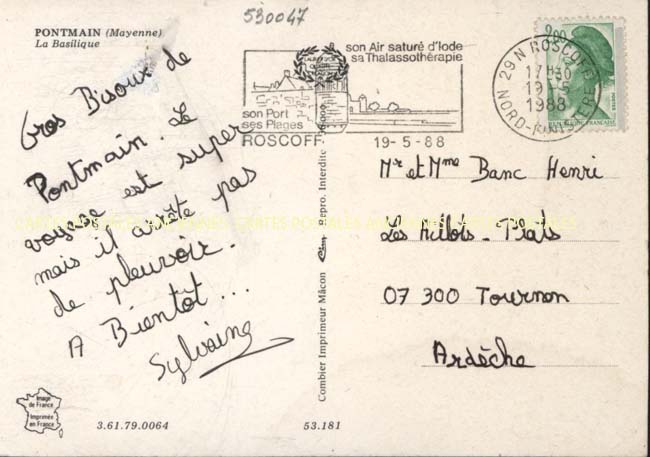 530047
PONTMAIN (Mayenne)
La Basilique
son Air saturé d'Iode
sa Thalassothérapie
son Port
ses Plages
ROSCOFF 19-5-88
2,00
29 N ROSCOFF
17H30
19-5
1988
NORD-FINISTERE
Gros Bisoux de
Pontmain. Le
voyage est super
mais il arrête pas
de pleuvoir.
A Bientôt...
Sylvaine
Combier Imprimeur Mâcon Cim Repro. Interdite
Mr et Mme Banc Henri
Les - Plats
07 300 Tournon
Ardèche
Image
de France
Imprimée
en France
3.61.79.0064
53.181